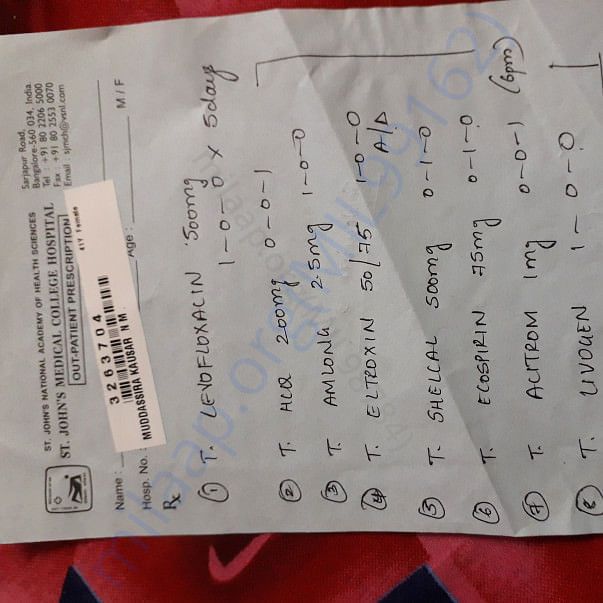 ST. JOHN'S NATIONAL ACADEMY OF HEALTH SCIENCES
ST. JOHN'S MEDICAL COLLEGE HOSPITAL
OUT-PATIENT PRESCRIPTION
Sarjapur Road,
Bangalore-560 034, India.
Tel : +91 80 2206 5000
Fax : +91 80 2553 0070
Email : sjmch@vsnl.com
41Y Female
3263704
MUDDASSIRA KAUSAR N M
Name :
Age :
M / F
Hosp. No. :
Rx
① T. LEVOFLOXACIN 500mg
1-0-0 x 5days
② T. HCQ 200mg 0-0-1
③ T. AMLONG 2.5mg 1-0-0
④ T. ELTROXIN 50/75 1-0-0
A/D
⑤ T. SHELCAL 500mg 0-1-0
⑥ T. ECOSPIRIN 75mg 0-1-0
⑦ T. ACITROM 1mg 0-0-1 (6pm)
⑧ T. LIVOGEN 1-0-0
milaap.org